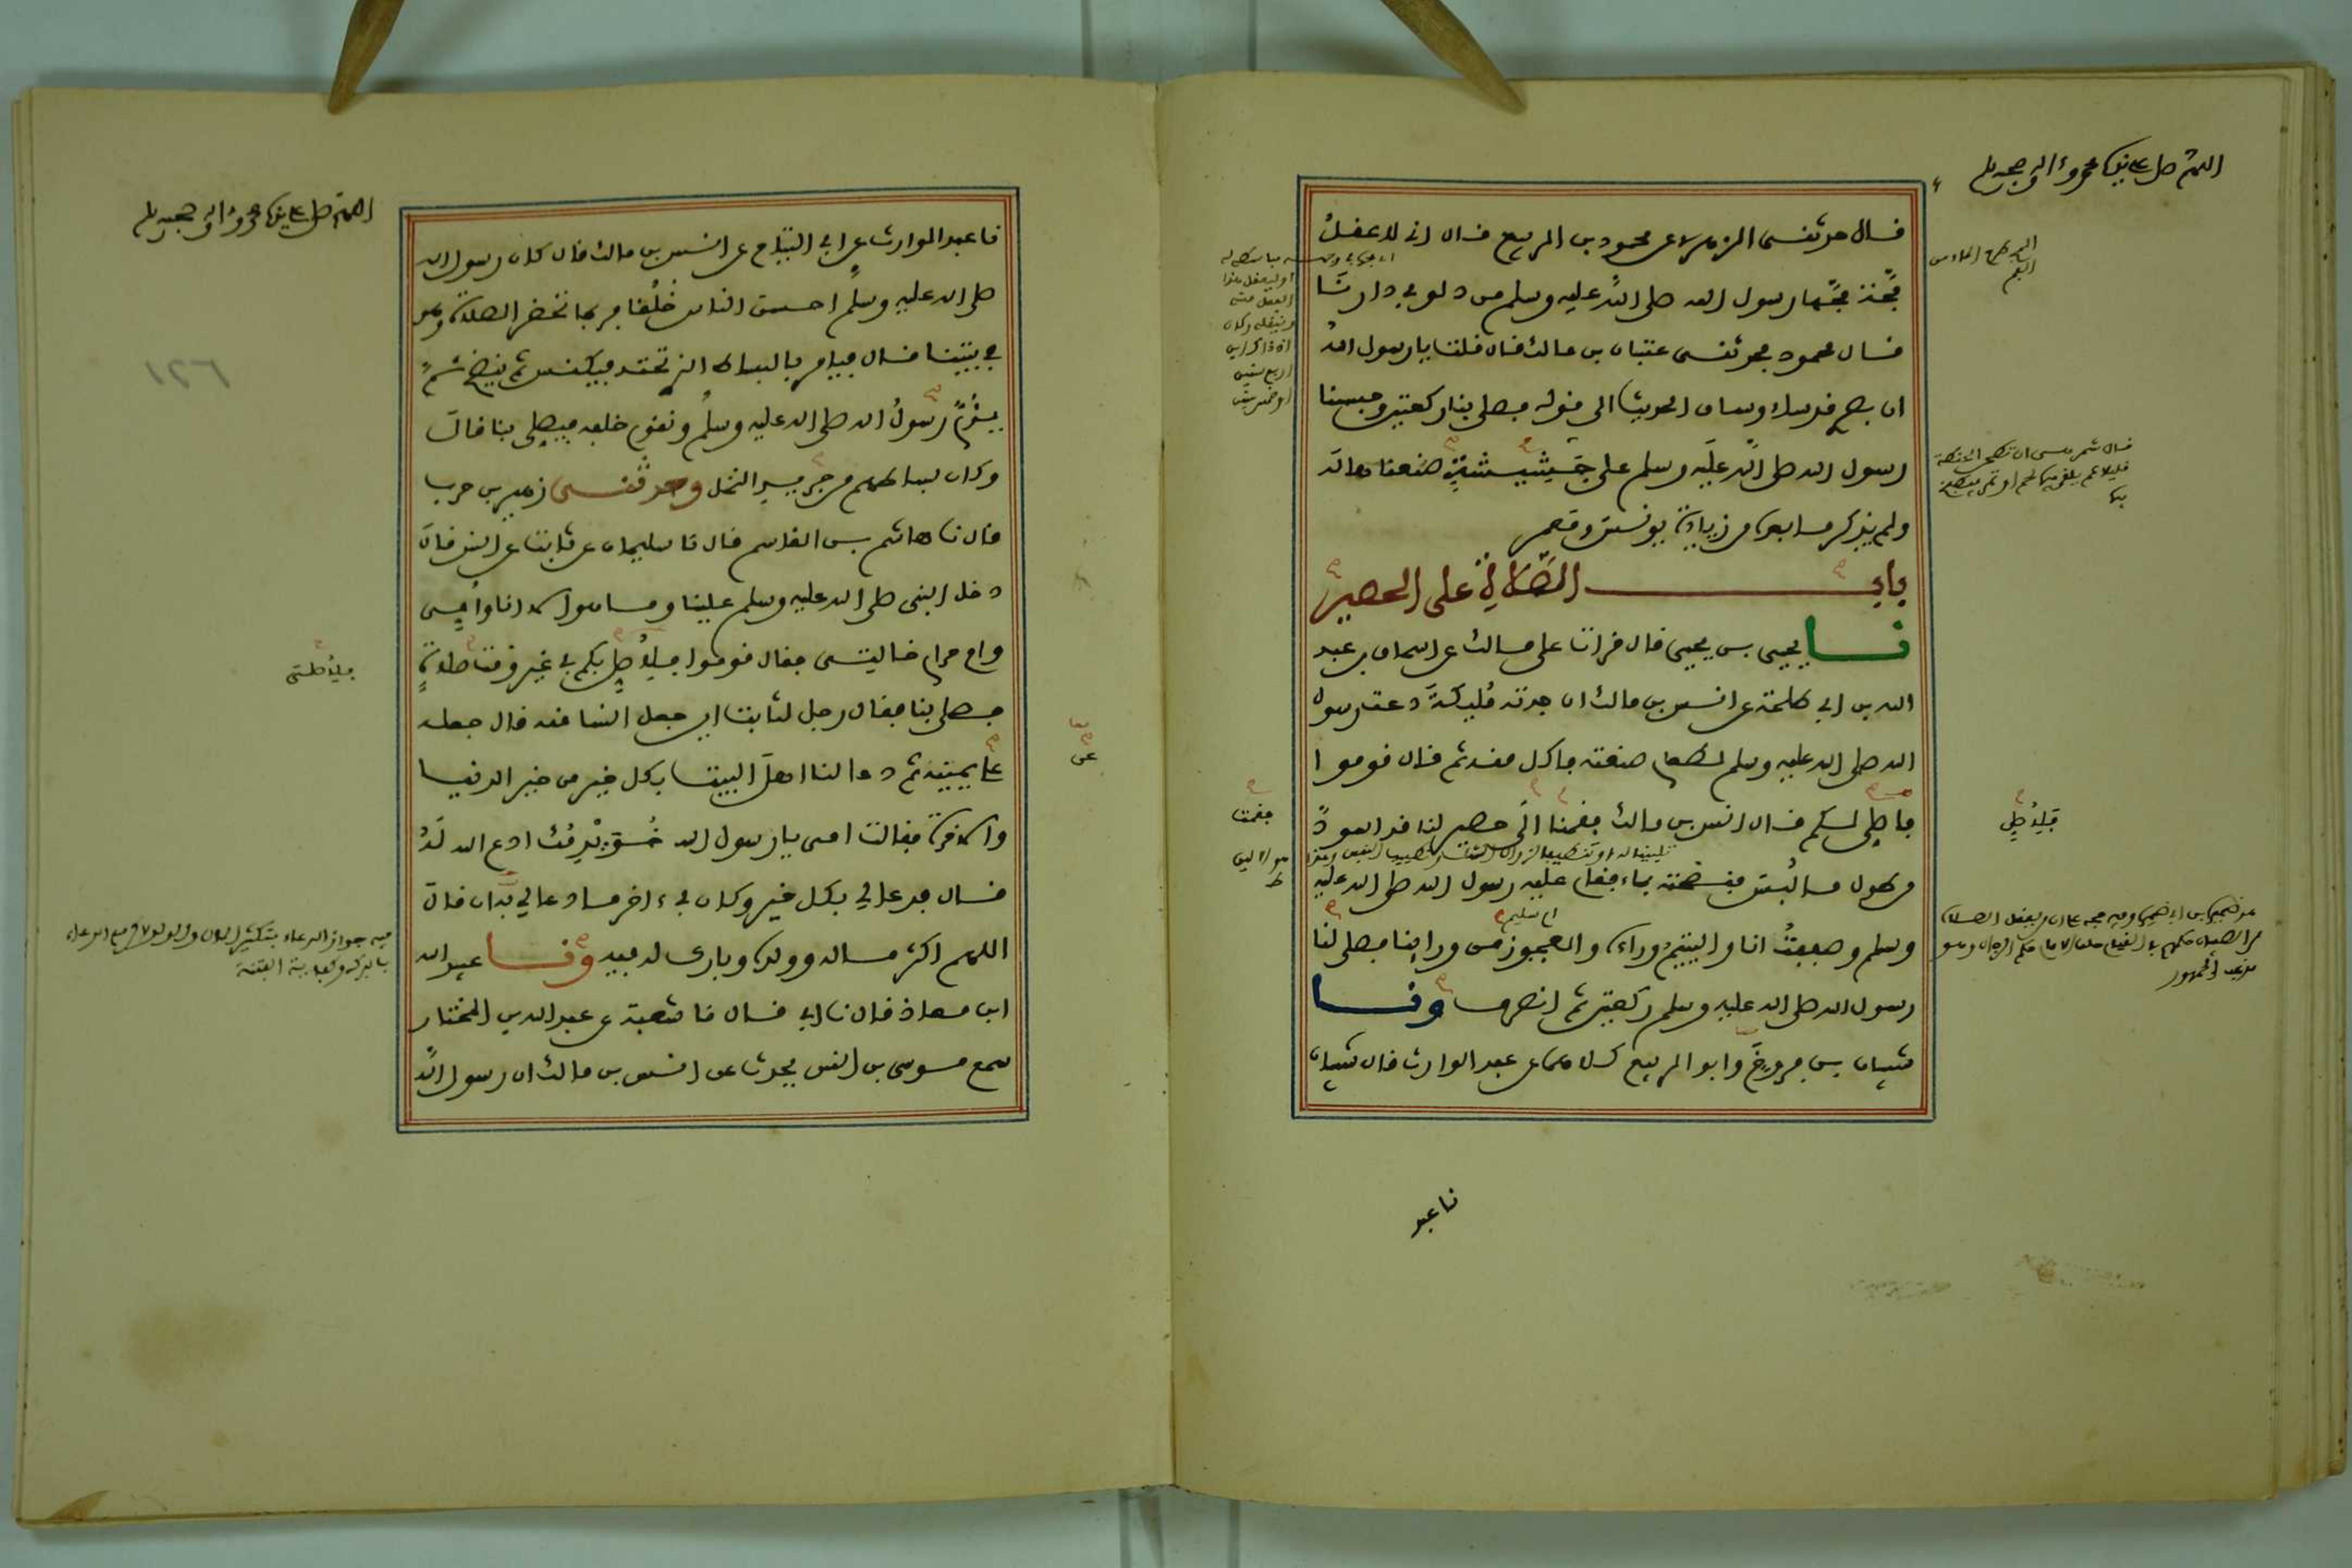 اللهم صل على سيدنا محمد وءاله وصحبه وسلم
قال حدثنى الزهرى عن محمود بن الربيع قال انى لاعقل
مجة مجها رسول الله صلى الله عليه وسلم من دلو فى دارنا
قال محمود فحدثنى عتبان بن مالك قال قلت يا رسول الله
ان بصرى قد ساء وساق الحديث الى قوله فصلى بنا ركعتين وحبسنا
رسول الله صلى الله عليه وسلم على جشيشة صنعناها له
ولم يذكر ما بعده من زيادة يونس ومعمر
باب الصلاة على الحصير
نا يحيى بن يحيى قال قرات على مالك عن اسحاق بن عبد
الله بن ابى طلحة عن انس بن مالك ان جدته مليكة دعت رسول
الله صلى الله عليه وسلم لطعام صنعته فاكل منه ثم قال قوموا
فاصلى لكم قال انس بن مالك فقمنا الى حصير لنا قد اسود
من طول ما لبس فنضحته بماء فقام عليه رسول الله صلى الله عليه
وسلم وصففت انا واليتيم وراءه والعجوز من ورائنا فصلى لنا
ام سليم
رسول الله صلى الله عليه وسلم ركعتين ثم انصرف ونا
شيبان بن فروخ وابو الربيع كلاهما عن عبد الوارث قال شيبان
نا عبد
فقمت
فلاصل
اللهم صل على سيدنا محمد وءاله وصحبه وسلم
نا عبد الوارث عن ابى التياح عن انس بن مالك قال كان رسول الله
صلى الله عليه وسلم احسن الناس خلقا فربما تحضر الصلاة وهو
فى بيتنا قال فيامر بالبساط الذى تحته فيكنس ثم ينضح ثم
يؤم رسول الله صلى الله عليه وسلم ونقوم خلفه فيصلى بنا قال
وكان بساطهم من جريد النخل وحدثنى زهير بن حرب
قال نا هاشم بن القاسم قال نا سليمان عن ثابت عن انس قال
دخل النبى صلى الله عليه وسلم علينا وما هو الا انا وامى
وام حرام خالتى فقال قوموا فلاصل بكم فى غير وقت صلاة
فصلى بنا فقال رجل لثابت اين جعل انسا منه قال جعله
على يمينه ثم دعا لنا اهل البيت بكل خير من خير الدنيا
والاخرة فقالت امى يا رسول الله خويدمك ادع الله له
قال فدعا لى بكل خير وكان فى ءاخر ما دعا لى به ان قال
اللهم اكثر ماله وولده وبارك له فيه ونا عبيد الله
ابن معاذ قال نا ابى قال نا شعبة عن عبد الله بن المختار
سمع موسى بن انس يحدث عن انس بن مالك ان رسول الله
عن
فيه جواز الدعاء بتكثير المال والولد مع الدعاء
١٢٦